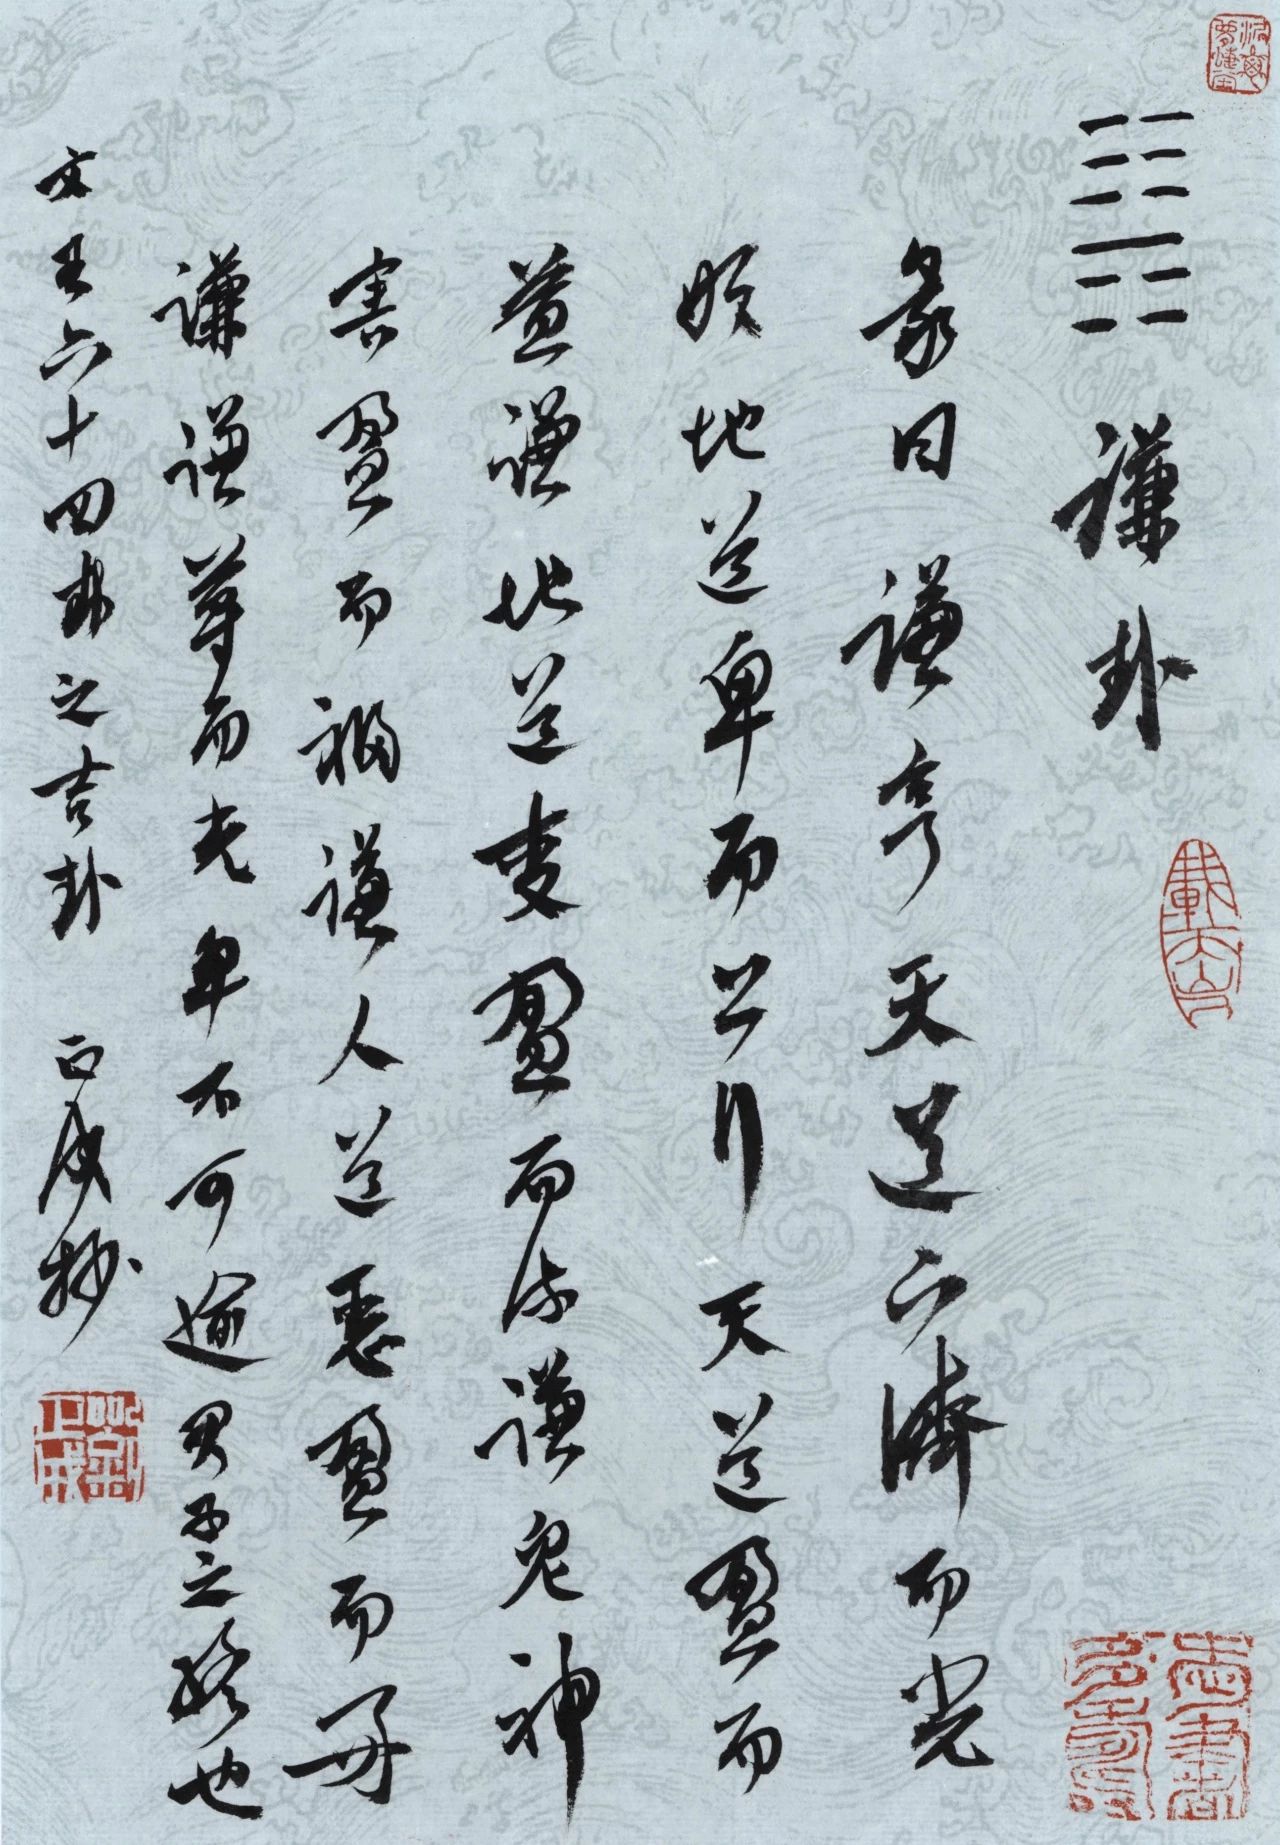 謙卦
彖曰謙亨天道下濟而光
地道卑而上行天道盈而
益謙地道变盈而流謙鬼神
害盈而福謙人道悪盈而好
謙謙尊而光卑不可逾君子之終也
文王六十四卦之吉卦 正成抄